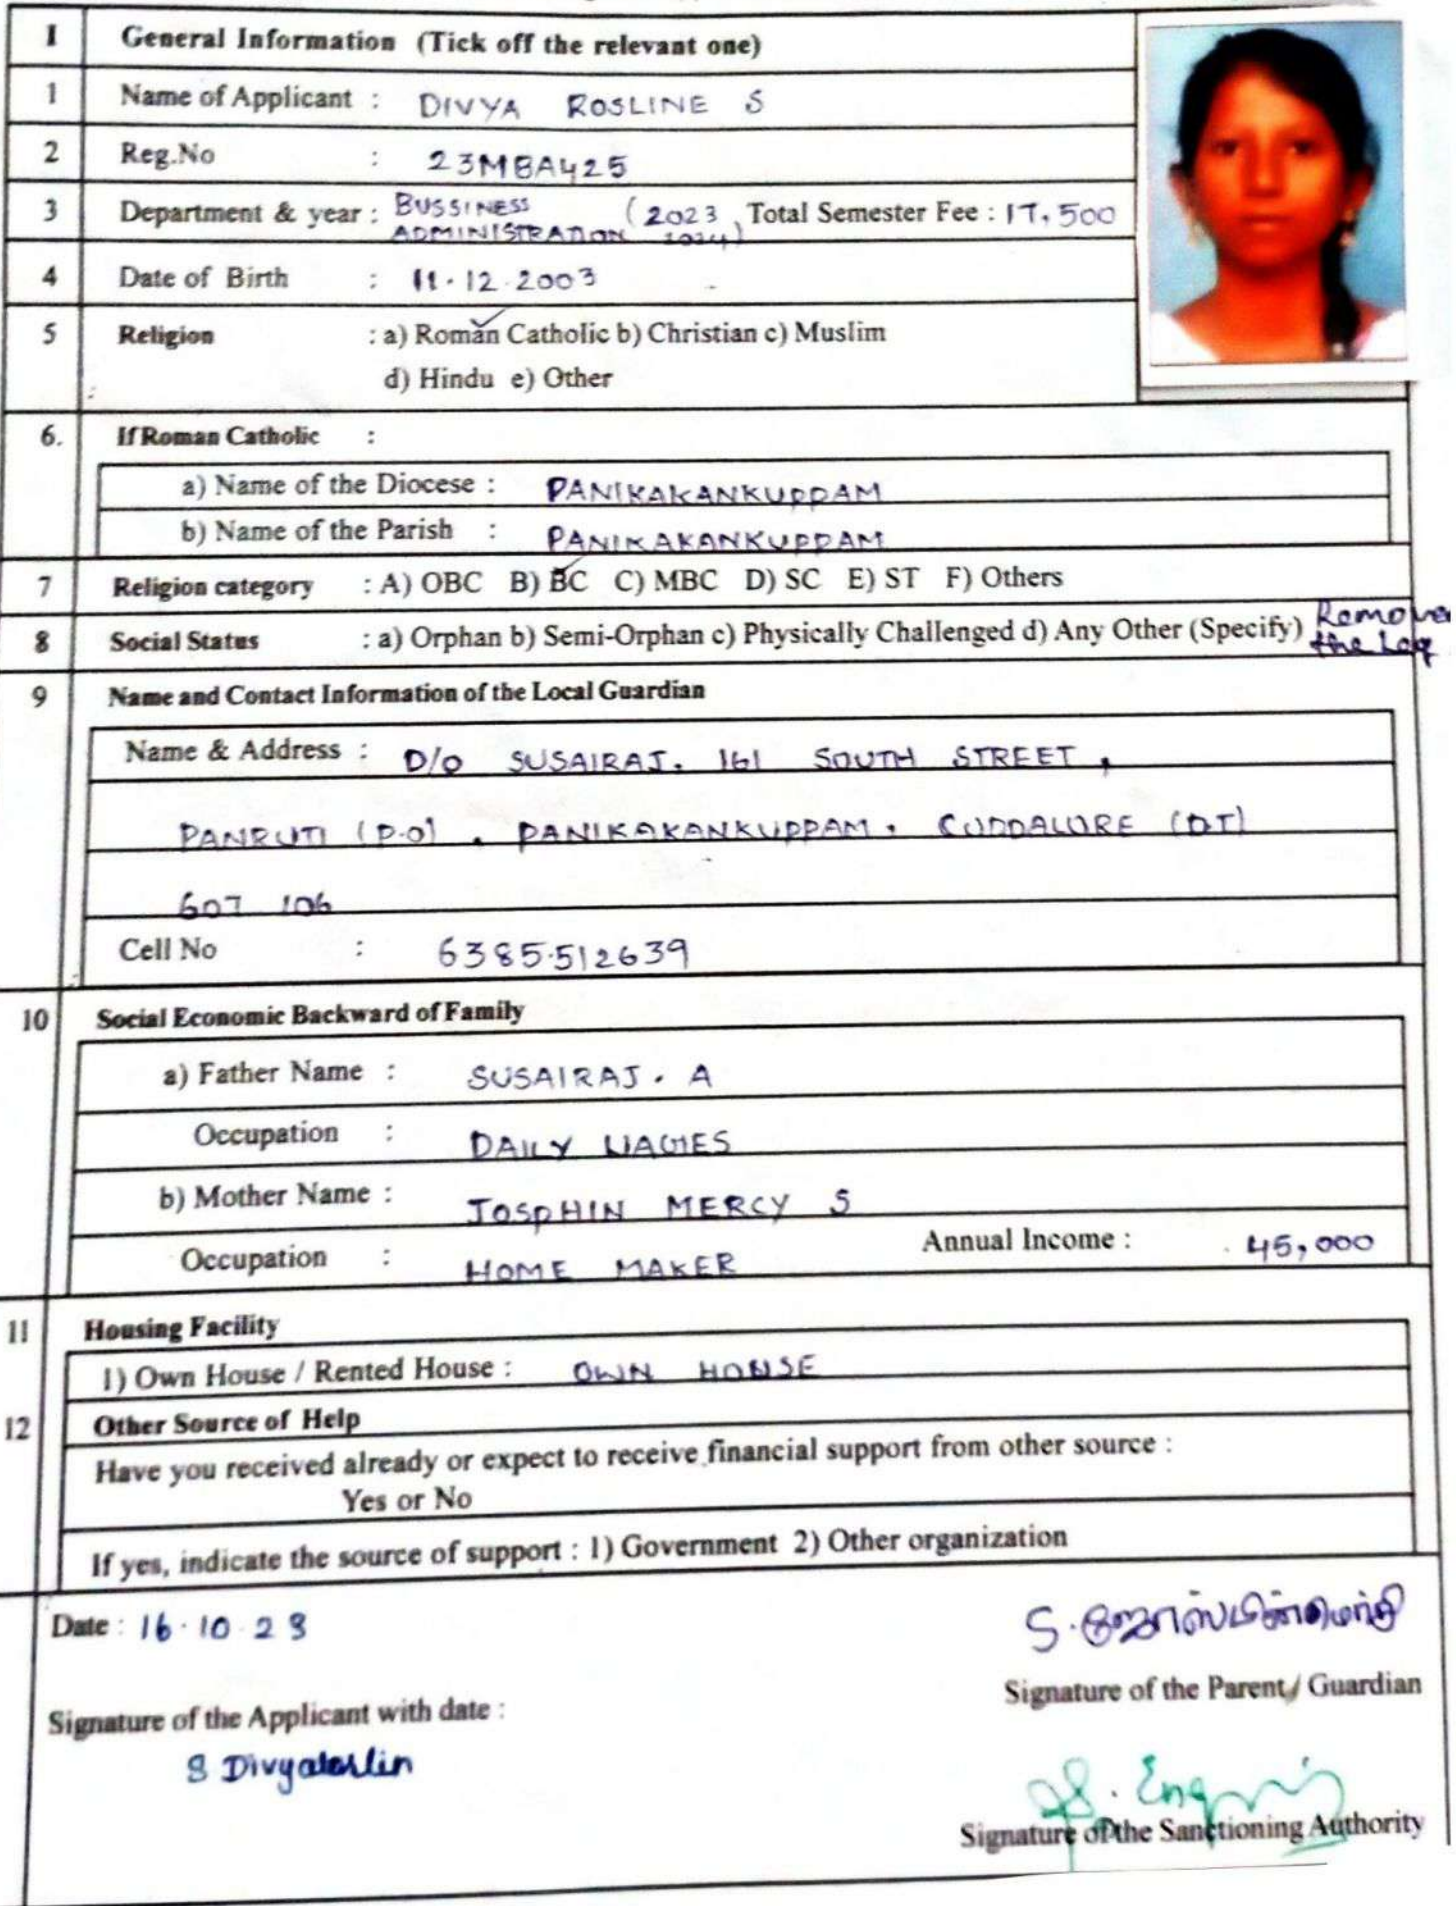 I General Information (Tick off the relevant one)
1 Name of Applicant : DIVYA ROSLINE S
2 Reg.No : 23MBA425
3 Department & year : BUSSINESS ADMINISTRATION (2023 2024) Total Semester Fee : 17,500
4 Date of Birth : 11.12.2003
5 Religion : a) Roman Catholic b) Christian c) Muslim
d) Hindu e) Other
6. If Roman Catholic :
a) Name of the Diocese : PANIKAKANKUPPAM
b) Name of the Parish : PANIKAKANKUPPAM
7 Religion category : A) OBC B) BC C) MBC D) SC E) ST F) Others
8 Social Status : a) Orphan b) Semi-Orphan c) Physically Challenged d) Any Other (Specify) Remove
the Leg
9 Name and Contact Information of the Local Guardian
Name & Address : D/O SUSAIRAJ. 161 SOUTH STREET,
PANRUTI (P.O), PANIKAKANKUPPAM, CUDDALORE (DT)
607 106
Cell No : 6385512639
10 Social Economic Backward of Family
a) Father Name : SUSAIRAJ. A
Occupation : DAILY WAGIES
b) Mother Name : JOSPHIN MERCY S
Occupation : HOME MAKER Annual Income : 45,000
11 Housing Facility
1) Own House / Rented House : OWN HOUSE
12 Other Source of Help
Have you received already or expect to receive financial support from other source :
Yes or No
If yes, indicate the source of support : 1) Government 2) Other organization
Date : 16.10.23
Signature of the Parent / Guardian
Signature of the Applicant with date :
S
Signature of the Sanctioning Authority